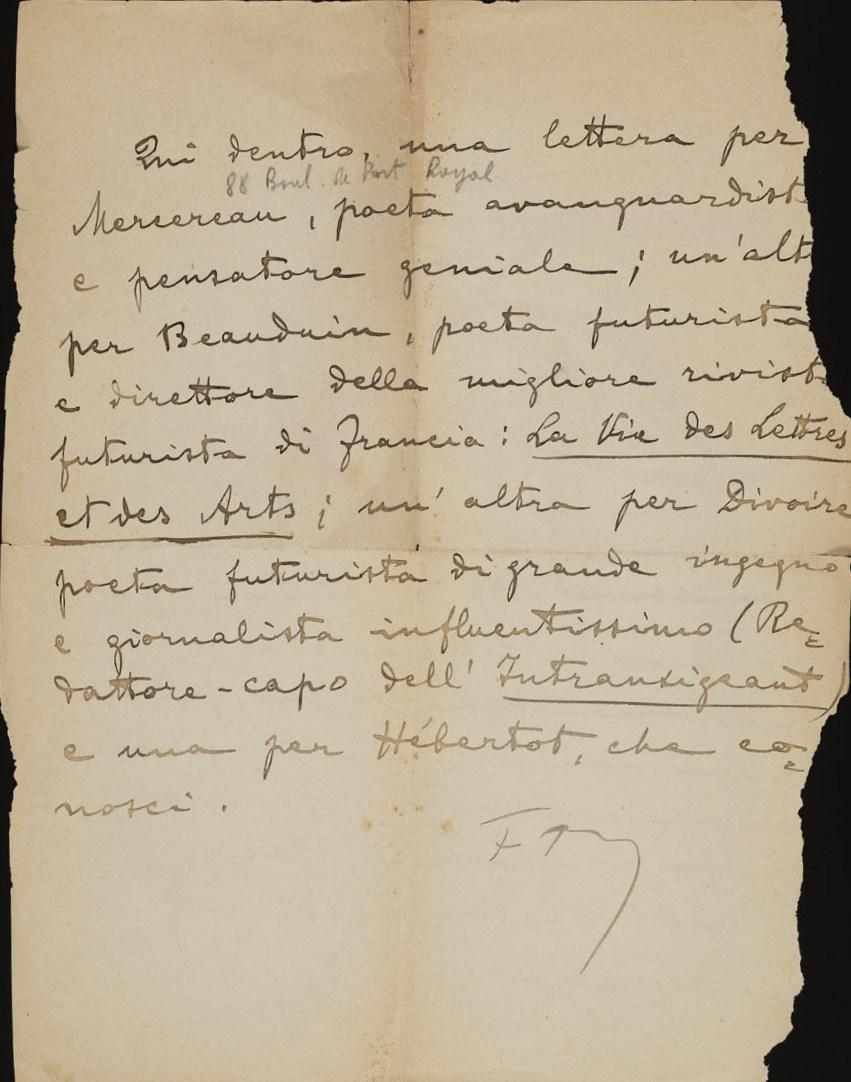 Qui dentro, una lettera per
88 Boul. de Port Royal
Mercereau, poeta avanguardist
e pensatore geniale; un'alt
per Beauduin, poeta futurista
e direttore della migliore rivist
futurista di Francia: La Vie des Lettres
et des Arts; un'altra per Divoire
poeta futurista di grande ingegno
e giornalista influentissimo (Re=
dattore-capo dell'Intransigeant)
e una per Hébertot, che co=
nosci.